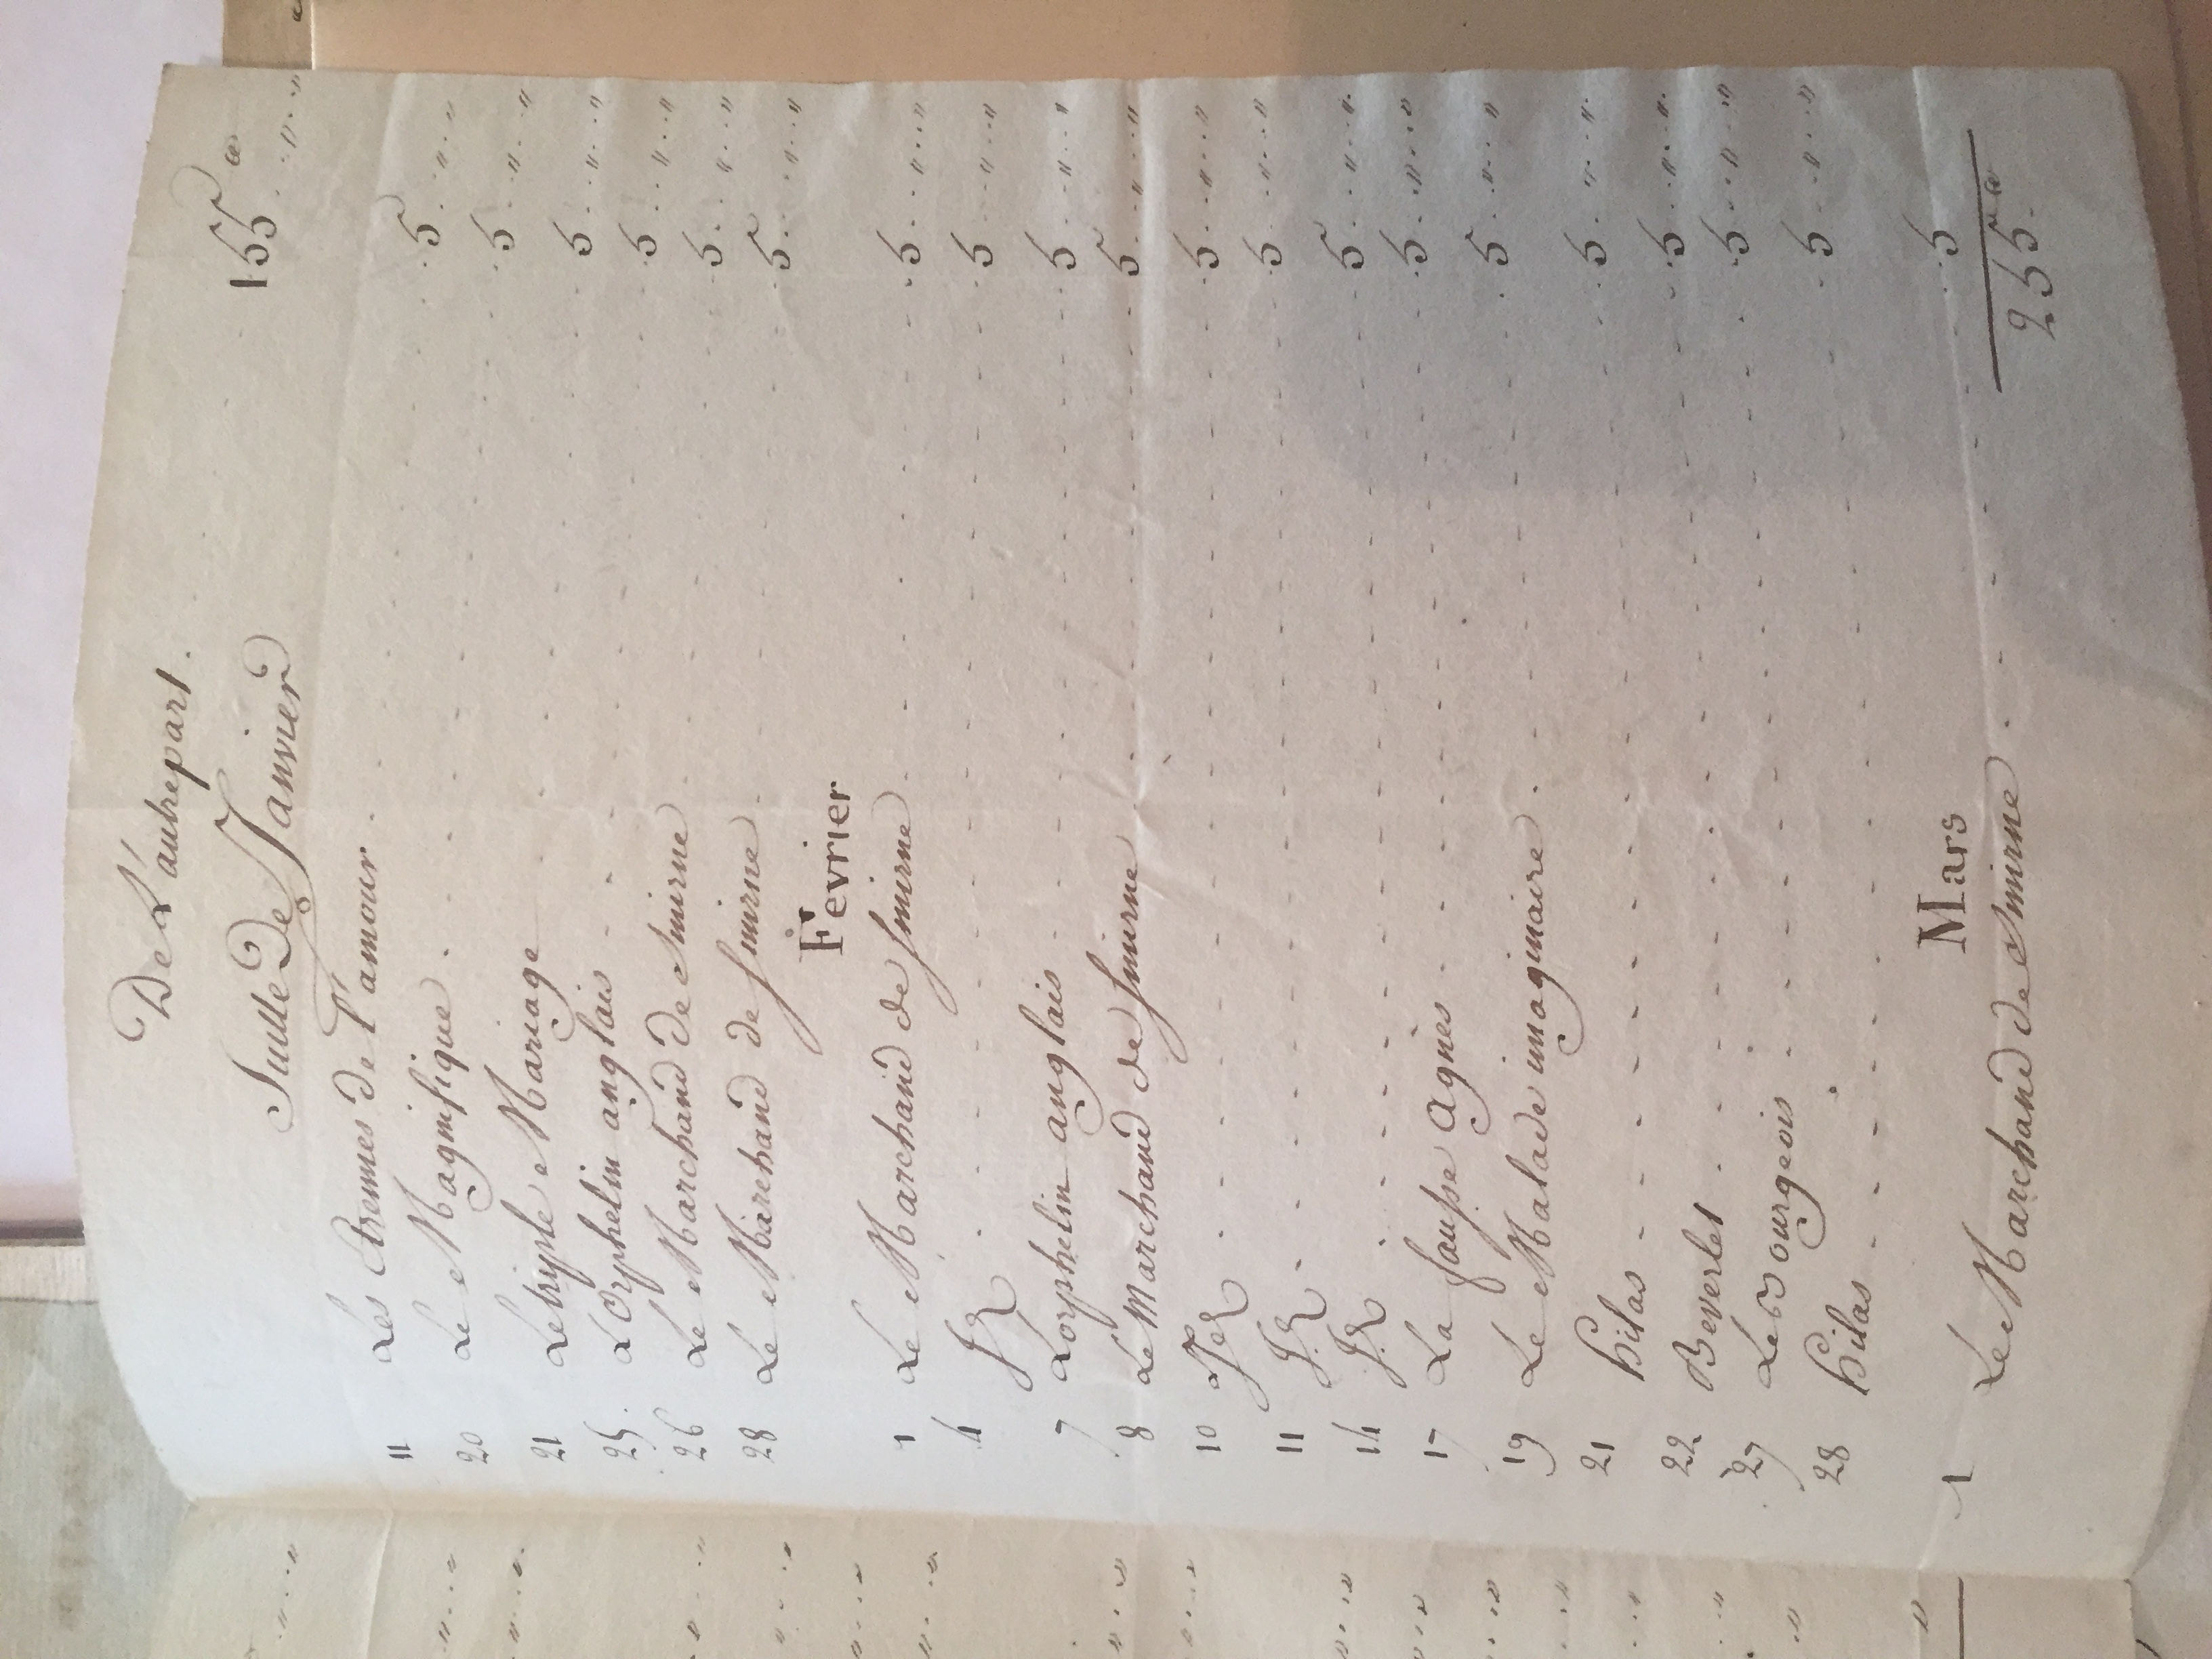 De L'autrepart.
155 ..,,..,,
Suitte De Janvier
11 Les Etrennes de l'amour . . . 5 . ,, . ,,
20 Le Magnifique . . . 5 . . ,, . . ,,
21 Le triple Mariage . . . 5 . . ,, . . ,,
25. L'Orphelin anglais . . . 5 . . ,, . . ,,
26 Le Marchand de Smirne . . . 5 . . ,, . . ,,
28 Le Marchand de Smirne . . . 5 . . ,, . . ,,
Fevrier
1 Le Marchand de Smirne . . . 5 . . ,, . . ,,
4 . . . 5 . . ,, . . ,,
7 Lorphelin anglais . . . 5 . . ,, . . ,,
8 Le Marchand de Smirne . . . 5 . . ,, . . ,,
10 . . . 5 . . ,, . . ,,
11 . . . 5 . . ,, . . ,,
14 . . . 5 . . ,, . . ,,
17 La fausse agnès . . . 5 . . ,, . . ,,
19 Le Malade imaginaire . . . 5 . . ,, . . ,,
21 hilas . . . 5 . . ,, . . ,,
22 Beverlei . . . 5 . . ,, . . ,,
27 Le Bourgeois . . . 5 . . ,, . . ,,
28 hilas . . . 5 . . ,, . . ,,
Mars
1 Le Marchand de Smirne . . . 5
255